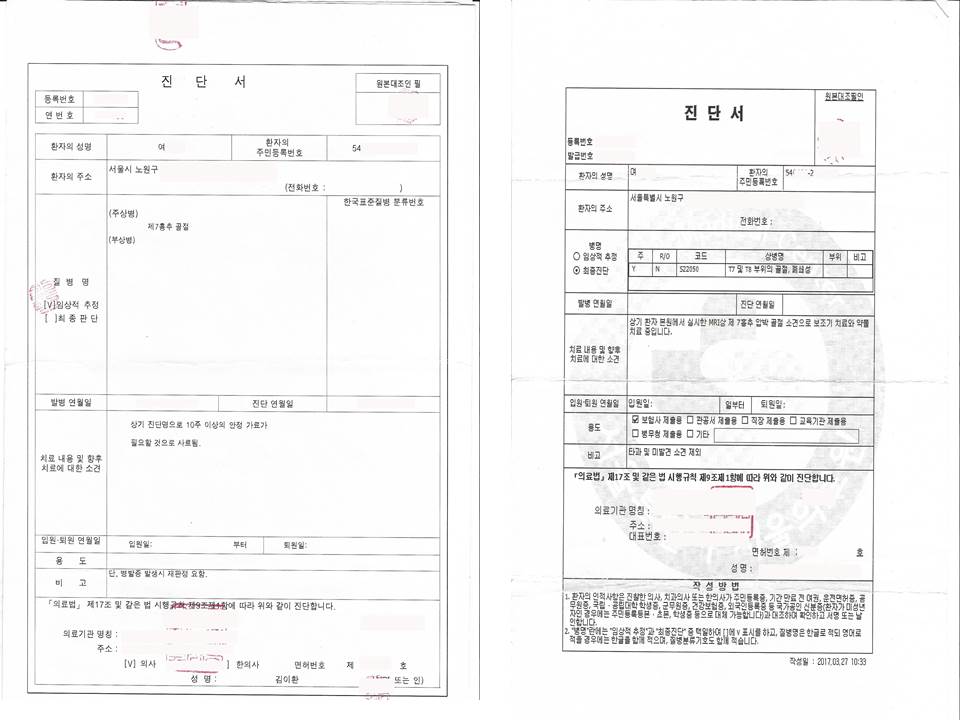 진 단 서
원본대조인 필
등록번호
연 번 호
환자의 성명
여
환자의
주민등록번호
54
환자의 주소
서울시 노원구
(전화번호 : )
질 병 명
[V]임상적 추정
[ ]최 종 판 단
(주상병)
제7흉추 골절
(부상병)
한국표준질병 분류번호
발병 연월일
진단 연월일
치료 내용 및 향후
치료에 대한 소견
상기 진단명으로 10주 이상의 안정 가료가
필요할 것으로 사료됨.
입원·퇴원 연월일
입원일: 부터 퇴원일:
용 도
비 고
단, 병발증 발생시 재판정 요함.
「의료법」 제17조 및 같은 법 시행규칙 제9조제1항에 따라 위와 같이 진단합니다.
의료기관 명칭 :
주소 :
[V] 의사 ] 한의사 면허번호 제 호
성 명 : 김이환 또는 인)
진 단 서
원본대조필인
등록번호
발급번호
환자의 성명
여
환자의
주민등록번호
54/ -2
환자의 주소
서울특별시 노원구
전화번호 :
병명
○ 임상적 추정
◉ 최종진단
주 R/O 코드 상병명 부위 비고
Y N S22050 T7 및 T8 부위의 골절, 폐쇄성
발병 연월일
진단 연월일
치료 내용 및 향후
치료에 대한 소견
상기 환자 본원에서 실시한 MRI상 제 7흉추 압박 골절 소견으로 보조기 치료와 약물
치료 중입니다.
입원·퇴원 연월일
입원일: 일부터 퇴원일:
용도
☑ 보험사 제출용 ☐ 관공서 제출용 ☐ 직장 제출용 ☐ 교육기관 제출용
☐ 병무청 제출용 ☐ 기타
비고
타과 및 미발견 소견 제외
「의료법」 제17조 및 같은 법 시행규칙 제9조제1항에 따라 위와 같이 진단합니다.
의료기관 명칭 :
주소 :
대표번호 :
면허번호 제 : 호
성 명 :
작 성 방 법
1. 환자의 인적사항은 진찰한 의사, 치과의사 또는 한의사가 주민등록증, 기간 만료 전 여권, 운전면허증, 공
무원증, 국립·공립대학 학생증, 군무원증, 건강보험증, 외국인등록증 등 국가공인 신분증(환자가 미성년
자인 경우에는 주민등록등본·초본, 학생증 등으로 대체 가능합니다)과 대조하여 확인하고 서명 또는 날
인합니다.
2. "병명"란에는 "임상적 추정"과 "최종진단" 중 택일하여 [ ]에 V 표시를 하고, 질병명은 한글로 적되 영어로
적을 경우에는 한글을 함께 적으며, 질병분류기호도 함께 적습니다.
작성일 : 2017.03.27 10:33